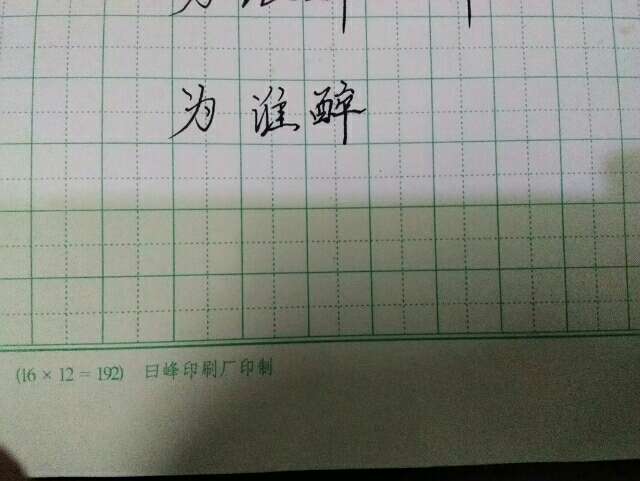 为谁醉
(16 × 12 = 192) 日峰印刷厂印制